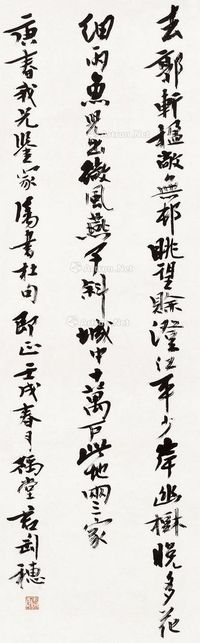 去郭轩楹敞無邨眺望賒澄江平少岸幽樹晚多花
細雨魚兒出微風燕子斜城中十萬户此地兩三家
康春我兄鑒家 書杜句即正壬戌春月 堂言刚穗